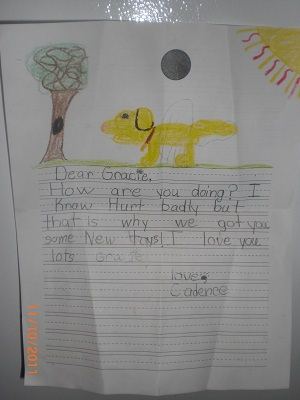 Dear Gracie,
How are you doing? I
know Hurt badly but
that is why we got you
some New toys! I love you
lots Gracie
love,
Cadence
11/10/2011